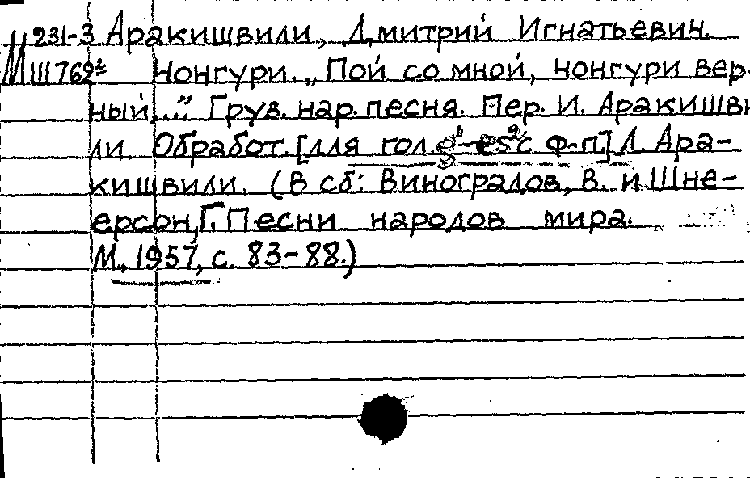 М 231-3 Аракишвили, Дмитрий Игнатьевич.
М III 762² Чонгури. „Пой со мной, чонгури вер-
ный..." Груз. нар. песня. Пер. И. Аракишви-
ли. Обработ. [для гол. g¹-es² с ф-п] Д. Ара-
кишвили. (В сб: Виноградов, В. и Шне-
ерсон, Г. Песни народов мира.
М., 1957, с. 83-88.)